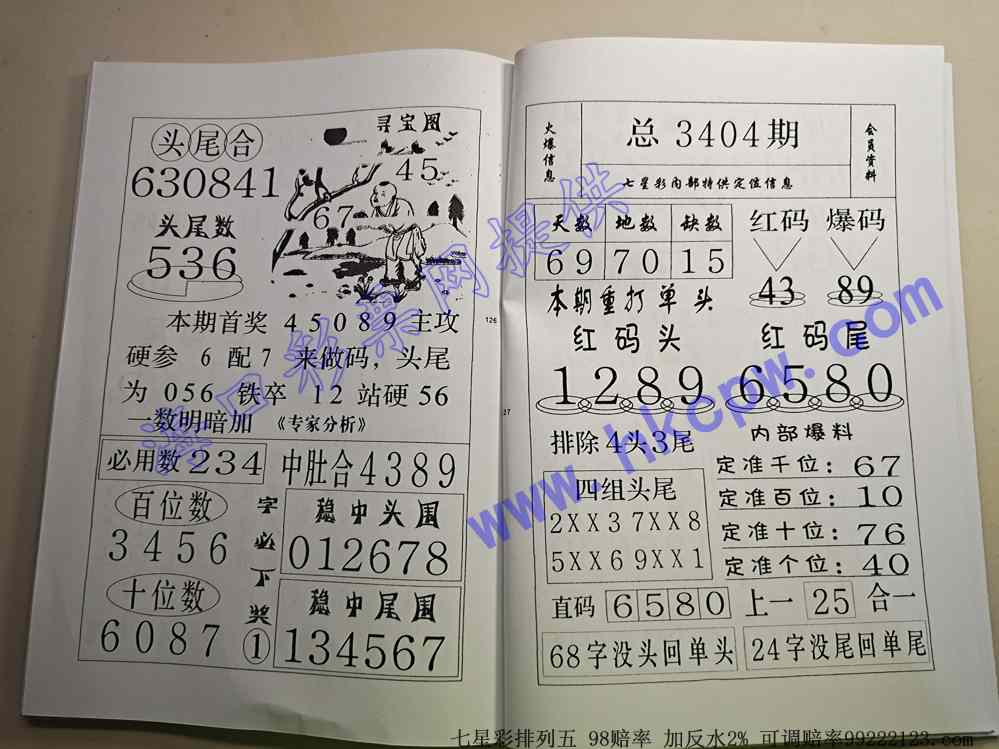 头尾合
630841
寻宝图
45
67
头尾数
536
本期首奖 45089 主攻
硬参 6 配 7 来做码，头尾
为 056 铁卒 12 站硬 56
一数明暗加 《专家分析》
必用数 234
中肚合 4389
百位数
3456
十位数
6087
字必下奖①
稳中头围
012678
稳中尾围
134567
126
火爆信息
总3404期
会员资料
七星彩内部特供定位信息
天数 地数 缺数
69 70 15
红码 爆码
43 89
本期重打单头
红码头 红码尾
1289 6580
127
排除4头3尾
内部爆料
四组头尾
2XX3 7XX8
5XX6 9XX1
定准千位：67
定准百位：10
定准十位：76
定准个位：40
直码 6580 上一 25 合一
68字没头回单头 24字没尾回单尾
海口彩票网提供
www.hkcpw.com
七星彩排列五 98赔率 加反水2% 可调赔率99222123.com